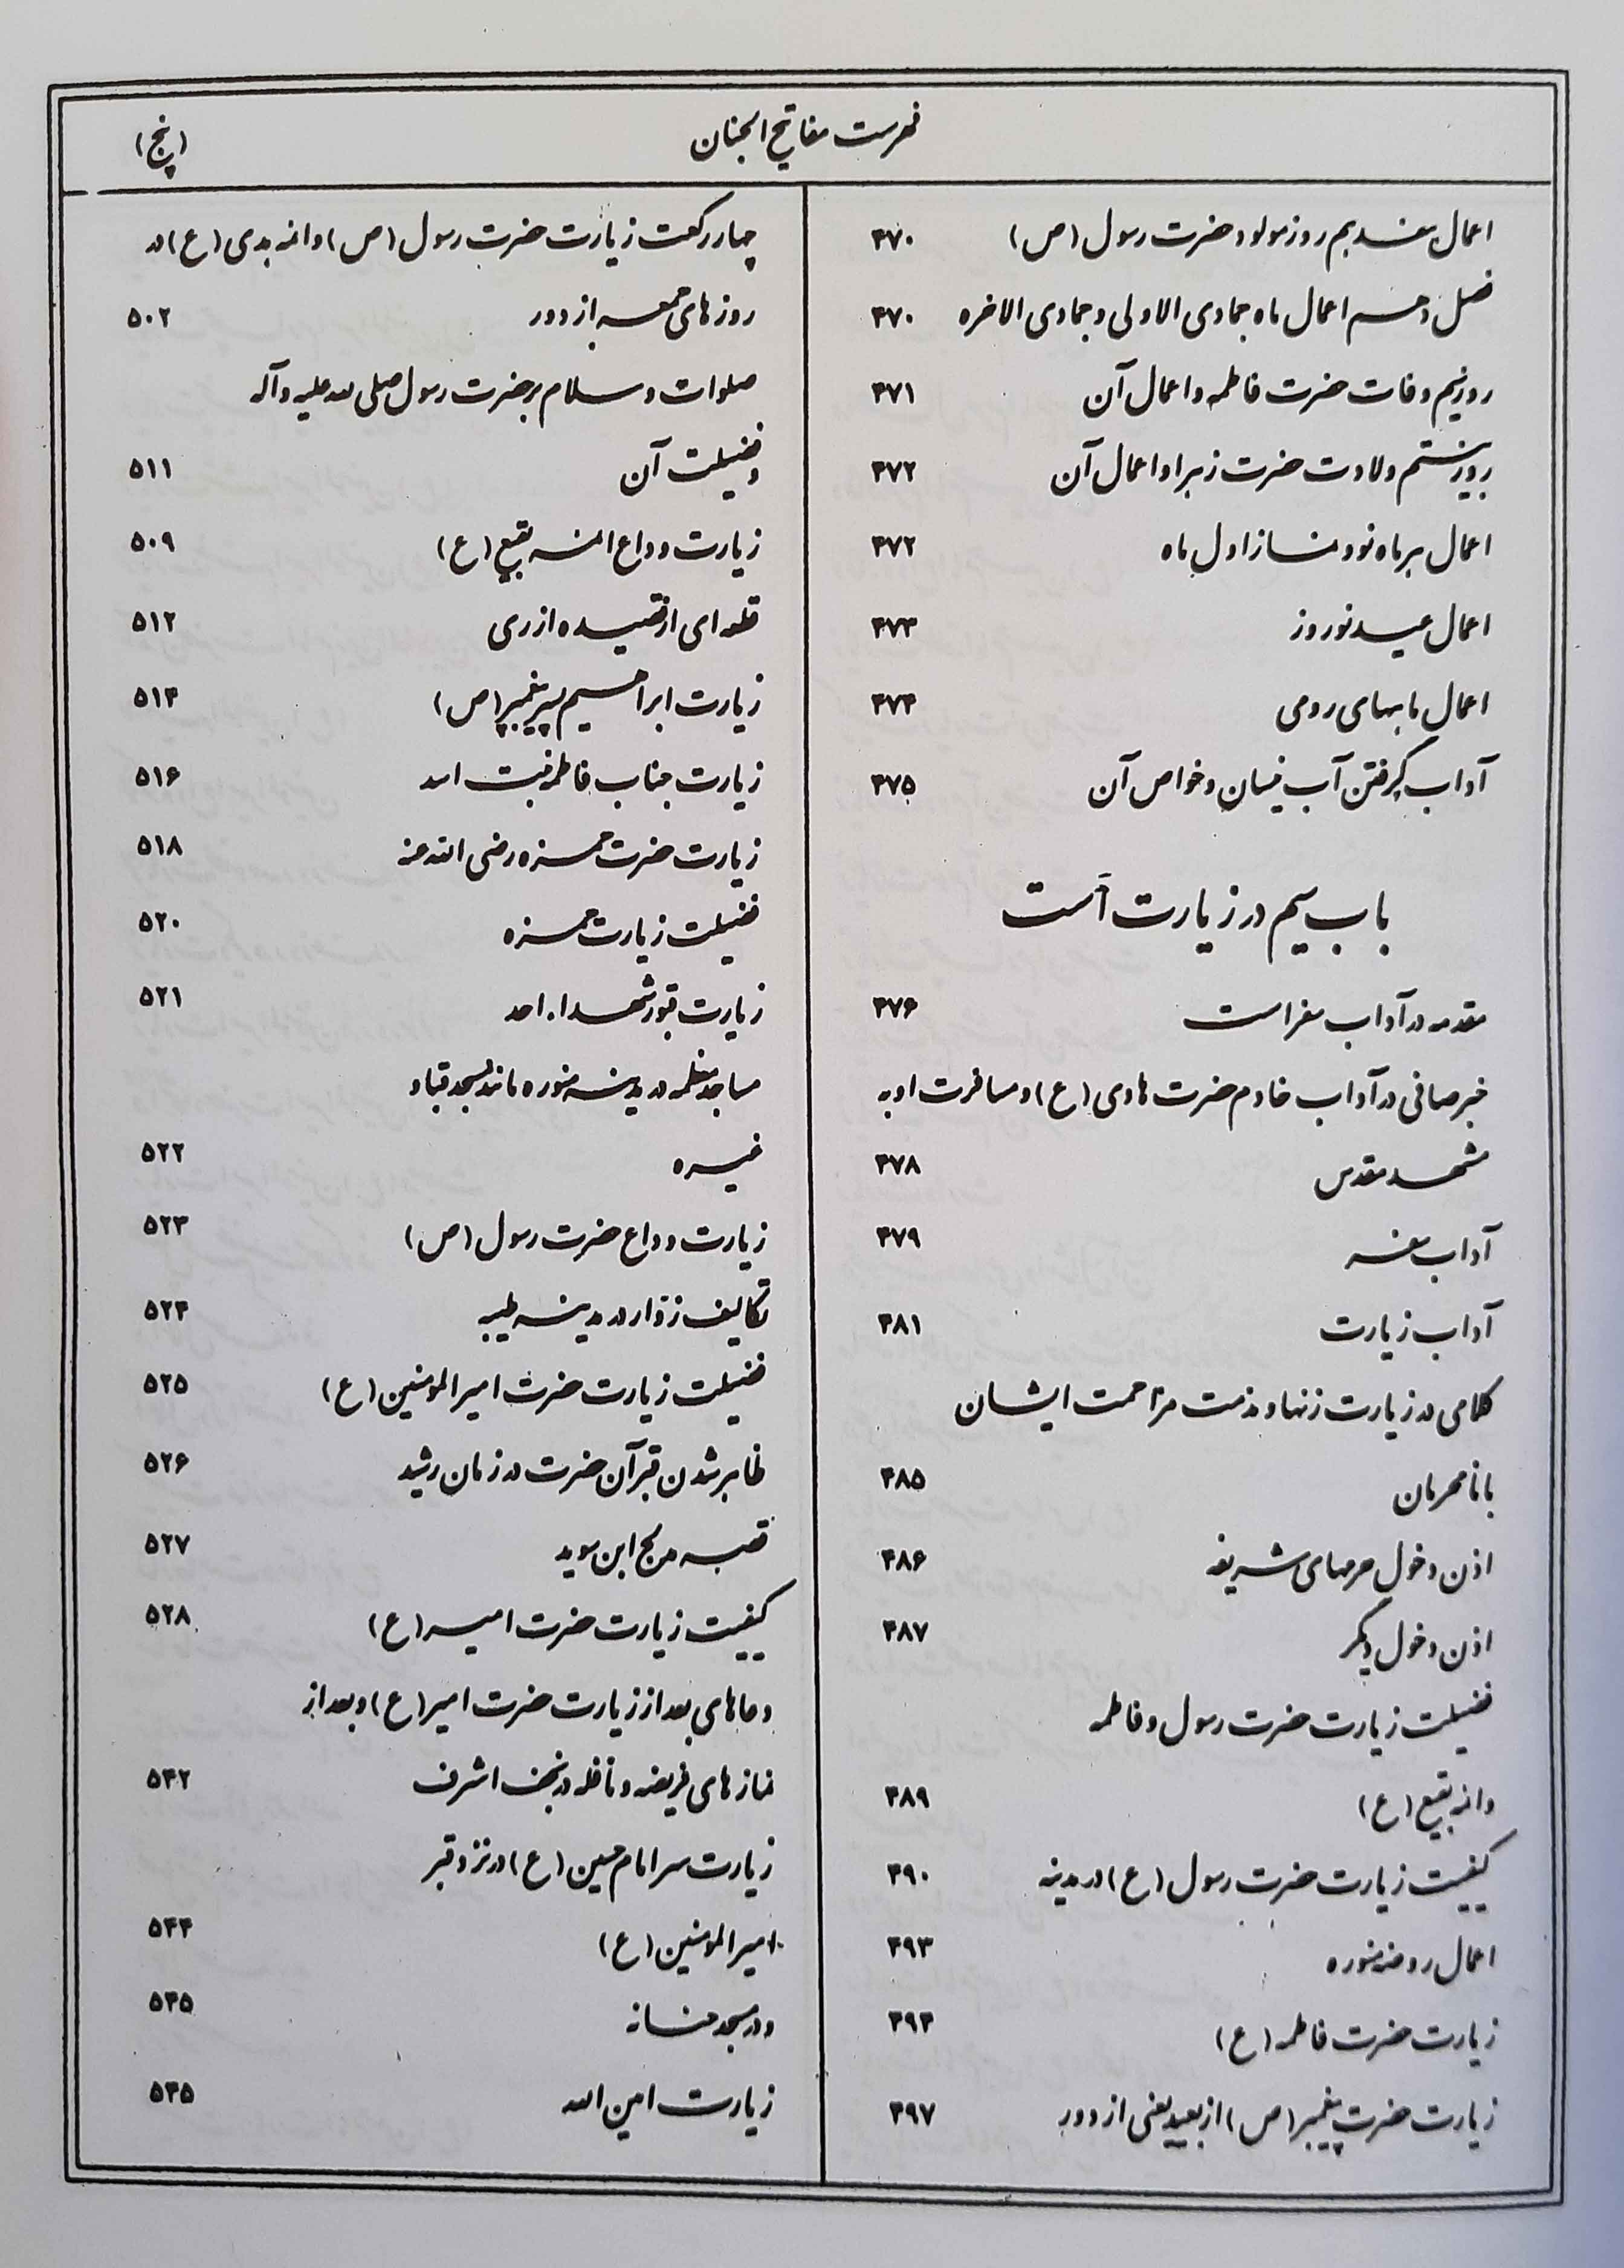 فهرست مفاتیح الجنان
(پنج)
اعمال هفدهم روز مولود حضرت رسول (ص) ۴۷۰
فصل دهم اعمال ماه جمادی الاولی و جمادی الاخره ۴۷۰
روز سیم وفات حضرت فاطمه و اعمال آن ۴۷۱
روز بیستم ولادت حضرت زهرا و اعمال آن ۴۷۲
اعمال هر ماه نو و نماز اول ماه ۴۷۲
اعمال عید نوروز ۴۷۳
اعمال ماههای رومی ۴۷۴
آداب گرفتن آب نیسان و خواص آن ۴۷۵
باب سیم در زیارت است
مقدمه در آداب سفر است ۴۷۶
خبر صافی در آداب خادم حضرت هادی (ع) و مسافرت او به
مشهد مقدس ۴۷۸
آداب سفر ۴۷۹
آداب زیارت ۴۸۱
کلامی در زیارت زنها و مذمت مزاحمت ایشان
با نامحرمان ۴۸۵
اذن دخول حرمهای شریفه ۴۸۶
اذن دخول دیگر ۴۸۷
فضیلت زیارت حضرت رسول و فاطمه
و ائمه بقیع (ع) ۴۸۹
کیفیت زیارت حضرت رسول (ع) در مدینه ۴۹۰
اعمال روضه منوره ۴۹۳
زیارت حضرت فاطمه (ع) ۴۹۴
زیارت حضرت پیغمبر (ص) از بعید یعنی از دور ۴۹۷
چهار رکعت زیارت حضرت رسول (ص) و ائمه هدی (ع) در
روزهای جمعه از دور ۵۰۲
صلوات و سلام بر حضرت رسول صلی الله علیه و آله
و فضیلت آن ۵۱۱
زیارت وداع ائمه بقیع (ع) ۵۰۹
قطعه ای از قصیده ازری ۵۱۲
زیارت ابراهیم پسر پیغمبر (ص) ۵۱۴
زیارت جناب فاطمه بنت اسد ۵۱۶
زیارت حضرت حمزه رضی الله عنه ۵۱۸
فضیلت زیارت حمزه ۵۲۰
زیارت قبور شهداء احد ۵۲۱
مساجد معظمه در مدینه منوره مانند مسجد قبا و
غیره ۵۲۲
زیارت وداع حضرت رسول (ص) ۵۲۳
تکالیف زوار در مدینه طیبه ۵۲۴
فضیلت زیارت حضرت امیرالمومنین (ع) ۵۲۵
ظاهر شدن قبر آن حضرت در زمان رشید ۵۲۶
قصه مرجع ابن سوید ۵۲۷
کیفیت زیارت حضرت امیر (ع) ۵۲۸
دعاهای بعد از زیارت حضرت امیر (ع) و بعد از
نمازهای فریضه و نافله در نجف اشرف ۵۴۲
زیارت سر امام حسین (ع) در نزد قبر
امیرالمومنین (ع) ۵۴۴
و در مسجد حنانه ۵۴۵
زیارت امین الله ۵۴۵